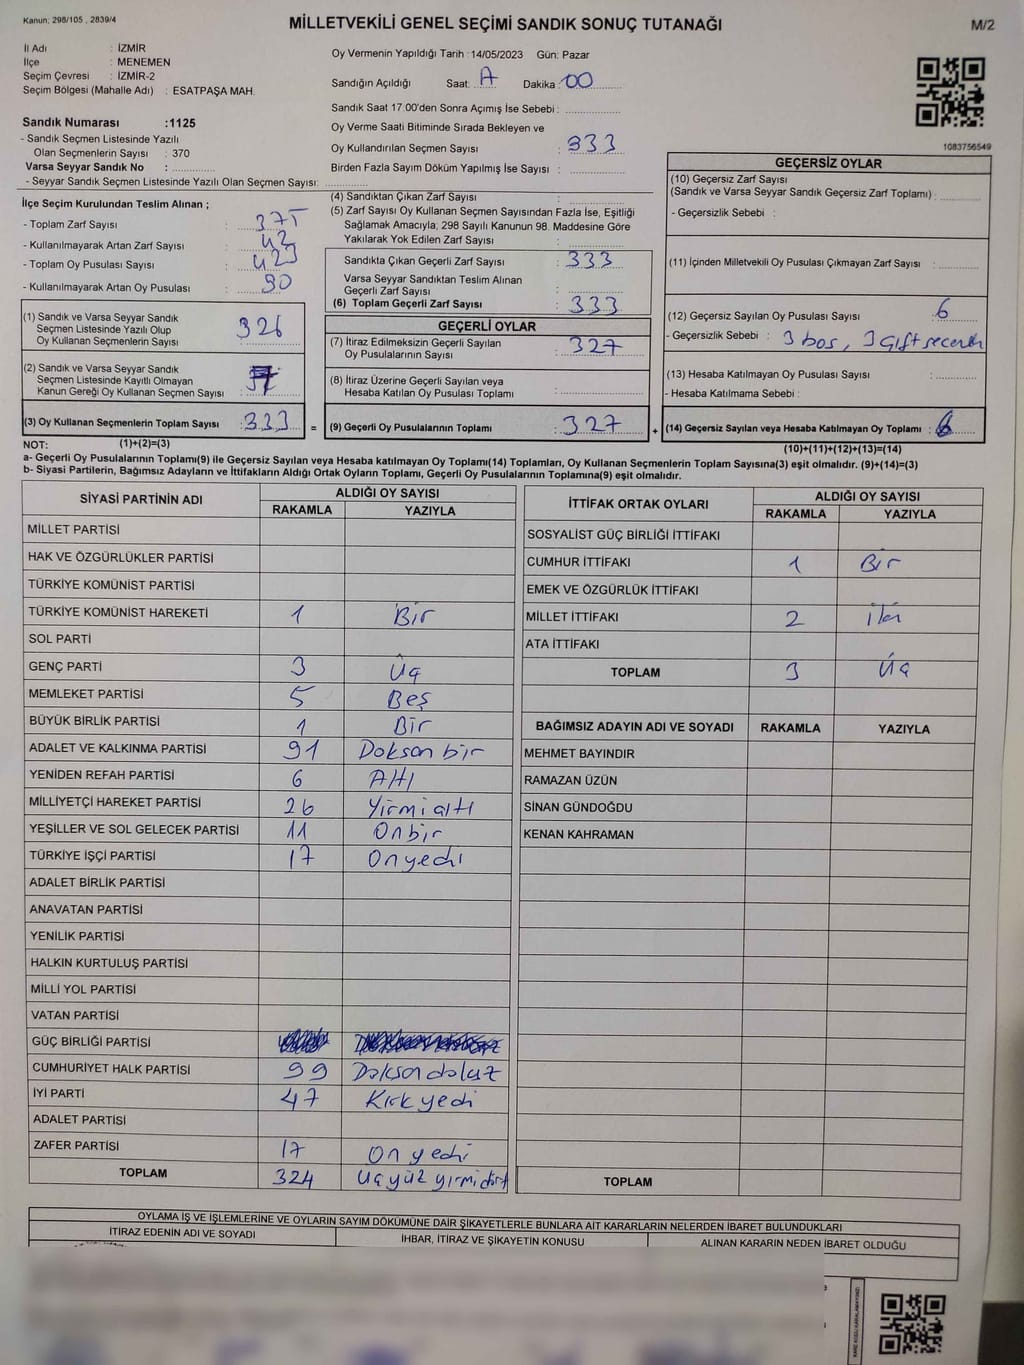 Kanun: 298/105 , 2839/4
MİLLETVEKİLİ GENEL SEÇİMİ SANDIK SONUÇ TUTANAĞI
M/2
İl Adı : İZMİR
İlçe : MENEMEN
Seçim Çevresi : İZMİR-2
Seçim Bölgesi (Mahalle Adı) : ESATPAŞA MAH.
Sandık Numarası :1125
- Sandık Seçmen Listesinde Yazılı
Olan Seçmenlerin Sayısı : 370
Varsa Seyyar Sandık No :
- Seyyar Sandık Seçmen Listesinde Yazılı Olan Seçmen Sayısı:
Oy Vermenin Yapıldığı Tarih :14/05/2023 Gün: Pazar
Sandığın Açıldığı Saat: Dakika: 00
Sandık Saat 17:00'den Sonra Açımış İse Sebebi :
Oy Verme Saati Bitiminde Sırada Bekleyen ve
Oy Kullandırılan Seçmen Sayısı : 333
Birden Fazla Sayım Döküm Yapılmış İse Sayısı :
1083756549
İlçe Seçim Kurulundan Teslim Alınan ;
- Toplam Zarf Sayısı : 375
- Kullanılmayarak Artan Zarf Sayısı : 42
- Toplam Oy Pusulası Sayısı : 423
- Kullanılmayarak Artan Oy Pusulası : 90
(1) Sandık ve Varsa Seyyar Sandık
Seçmen Listesinde Yazılı Olup
Oy Kullanan Seçmenlerin Sayısı 326
(2) Sandık ve Varsa Seyyar Sandık
Seçmen Listesinde Kayıtlı Olmayan
Kanun Gereği Oy Kullanan Seçmen Sayısı : 7
(3) Oy Kullanan Seçmenlerin Toplam Sayısı :333 =
(4) Sandıktan Çıkan Zarf Sayısı :
(5) Zarf Sayısı Oy Kullanan Seçmen Sayısından Fazla İse, Eşitliği
Sağlamak Amacıyla; 298 Sayılı Kanunun 98. Maddesine Göre
Yakılarak Yok Edilen Zarf Sayısı :
Sandıkta Çıkan Geçerli Zarf Sayısı : 333
Varsa Seyyar Sandıktan Teslim Alınan
Geçerli Zarf Sayısı :
(6) Toplam Geçerli Zarf Sayısı : 333
GEÇERLİ OYLAR
(7) İtiraz Edilmeksizin Geçerli Sayılan
Oy Pusulalarının Sayısı : 327
(8) İtiraz Üzerine Geçerli Sayılan veya
Hesaba Katılan Oy Pusulası Toplamı :
(9) Geçerli Oy Pusulalarının Toplamı : 327 +
GEÇERSİZ OYLAR
(10) Geçersiz Zarf Sayısı
(Sandık ve Varsa Seyyar Sandık Geçersiz Zarf Toplamı) :
- Geçersizlik Sebebi :
(11) İçinden Milletvekili Oy Pusulası Çıkmayan Zarf Sayısı :
(12) Geçersiz Sayılan Oy Pusulası Sayısı : 6
- Geçersizlik Sebebi : 3 boş, 3 çift
(13) Hesaba Katılmayan Oy Pusulası Sayısı :
- Hesaba Katılmama Sebebi :
(14) Geçersiz Sayılan veya Hesaba Katılmayan Oy Toplamı : 6
NOT: (1)+(2)=(3) (10)+(11)+(12)+(13)=(14)
a- Geçerli Oy Pusulalarının Toplamı(9) ile Geçersiz Sayılan veya Hesaba katılmayan Oy Toplamı(14) Toplamları, Oy Kullanan Seçmenlerin Toplam Sayısına(3) eşit olmalıdır. (9)+(14)=(3)
b- Siyasi Partilerin, Bağımsız Adayların ve İttifakların Aldığı Ortak Oyların Toplamı, Geçerli Oy Pusulalarının Toplamına(9) eşit olmalıdır.
SİYASİ PARTİNİN ADI ALDIĞI OY SAYISI
RAKAMLA YAZIYLA
MİLLET PARTİSİ
HAK VE ÖZGÜRLÜKLER PARTİSİ
TÜRKİYE KOMÜNİST PARTİSİ
TÜRKİYE KOMÜNİST HAREKETİ 1 Bir
SOL PARTİ
GENÇ PARTİ 3 Üç
MEMLEKET PARTİSİ 5 Beş
BÜYÜK BİRLİK PARTİSİ 1 Bir
ADALET VE KALKINMA PARTİSİ 91 Doksan bir
YENİDEN REFAH PARTİSİ 6 Altı
MİLLİYETÇİ HAREKET PARTİSİ 26 Yirmi altı
YEŞİLLER VE SOL GELECEK PARTİSİ 11 Onbir
TÜRKİYE İŞÇİ PARTİSİ 17 Onyedi
ADALET BİRLİK PARTİSİ
ANAVATAN PARTİSİ
YENİLİK PARTİSİ
HALKIN KURTULUŞ PARTİSİ
MİLLİ YOL PARTİSİ
VATAN PARTİSİ
GÜÇ BİRLİĞİ PARTİSİ
CUMHURİYET HALK PARTİSİ 99 Doksan dokuz
İYİ PARTİ 47 Kırk yedi
ADALET PARTİSİ
ZAFER PARTİSİ 17 On yedi
TOPLAM 324 Üçyüz yirmi dört
İTTİFAK ORTAK OYLARI ALDIĞI OY SAYISI
RAKAMLA YAZIYLA
SOSYALİST GÜÇ BİRLİĞİ İTTİFAKI
CUMHUR İTTİFAKI 1 Bir
EMEK VE ÖZGÜRLÜK İTTİFAKI
MİLLET İTTİFAKI 2 iki
ATA İTTİFAKI
TOPLAM 3 Üç
BAĞIMSIZ ADAYIN ADI VE SOYADI RAKAMLA YAZIYLA
MEHMET BAYINDIR
RAMAZAN ÜZÜN
SİNAN GÜNDOĞDU
KENAN KAHRAMAN
TOPLAM
OYLAMA İŞ VE İŞLEMLERİNE VE OYLARIN SAYIM DÖKÜMÜNE DAİR ŞİKAYETLERLE BUNLARA AİT KARARLARIN NELERDEN İBARET BULUNDUKLARI
İTİRAZ EDENİN ADI VE SOYADI İHBAR, İTİRAZ VE ŞİKAYETİN KONUSU ALINAN KARARIN NEDEN İBARET OLDUĞU